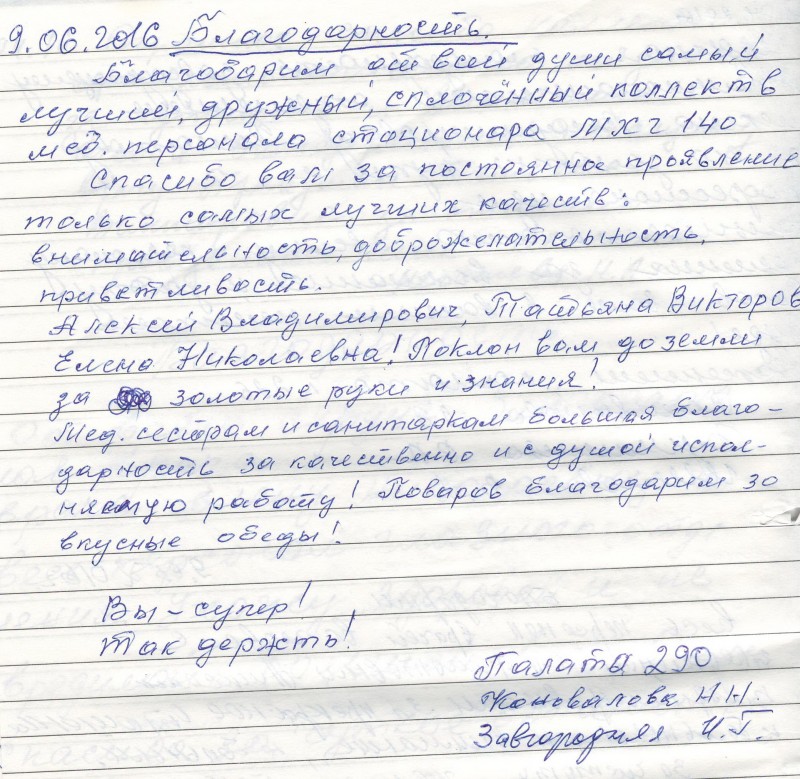 9.06.2016 Благодарность.
Благодарим от всей души самый
лучший, дружный, сплочённый коллектв
мед. персонала стационара МХЧ 140
Спасибо вам за постоянное проявление
только самых лучших качеств:
внимательность, доброжелательность,
приветливость.
Алексей Владимирович, Татьяна Викторов
Елена Николаевна! Поклон вам до земли
за золотые руки и знания!
Мед. сестрам и санитаркам большая благо-
дарность за качественно и с душой испол-
няемую работу! Поваров благодарим за
вкусные обеды!
Вы – супер!
Так держть!
Палата 290
Коновалова Н.Н.
Завгородняя И.Г.